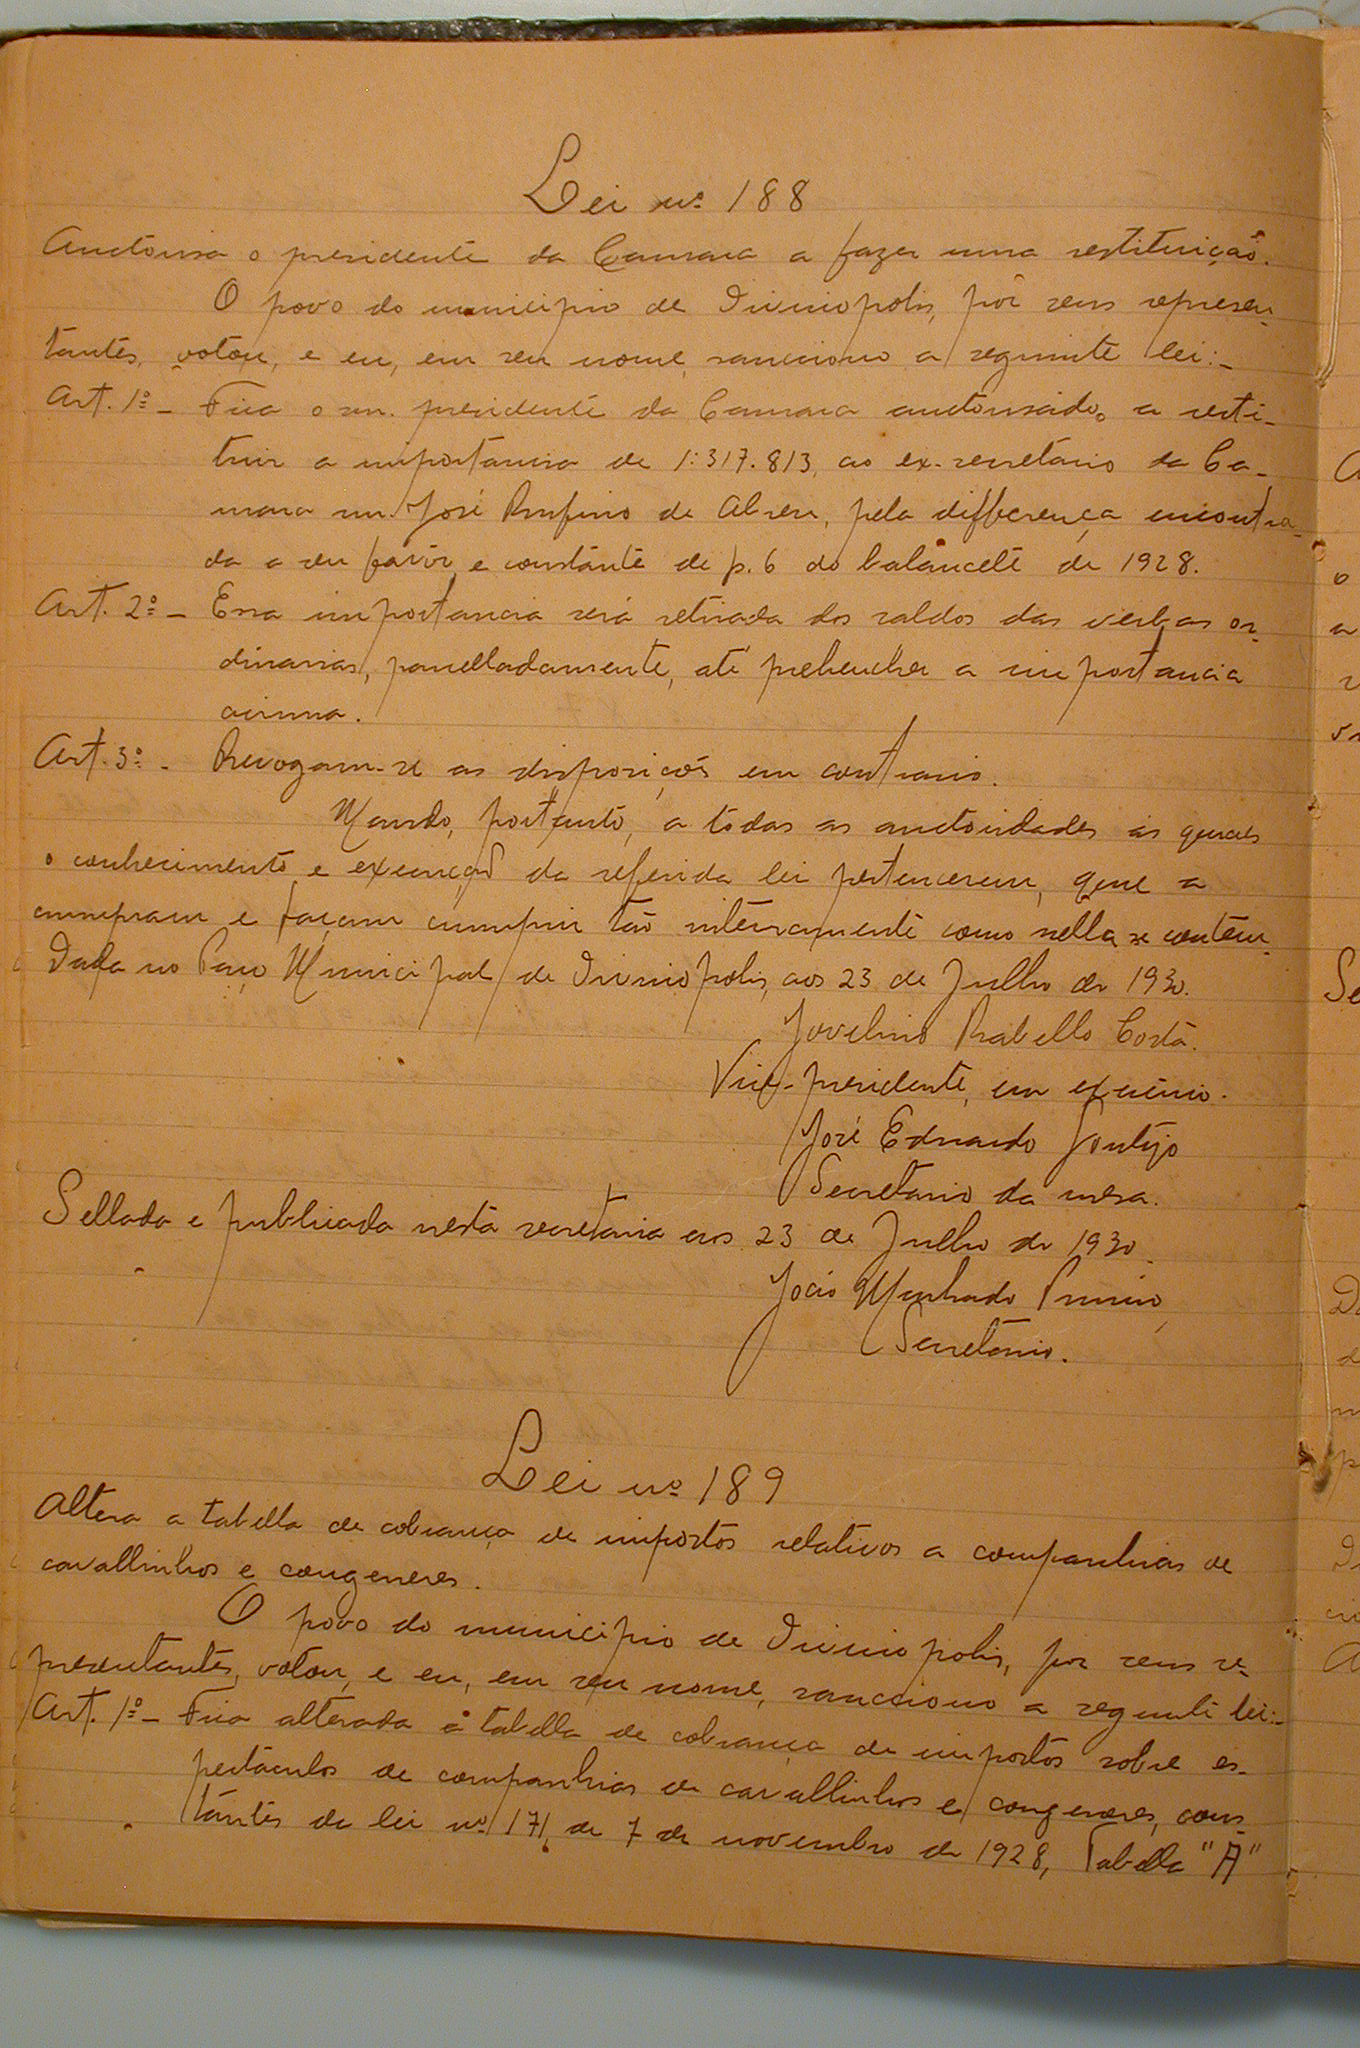 Lei nº 188
Auctorisa o presidente da Camara a fazer uma restituição.
O povo do municipio de Divinopolis, por seus represen-
tantes, votou, e eu, em seu nome, sancciono a seguinte lei:-
Art. 1º - Fica o snr. presidente da Camara auctorisado, a resti-
tuir a importancia de 1:317.813, ao ex-secretario da Ca-
mara snr. José Rufino de Abreu, pela differença encontra-
da a seu favor e constante de p. 6 do balancete de 1928.
Art. 2º - Essa importancia será retirada dos saldos das verbas or-
dinarias, parcelladamente, até prehencher a importancia
acima.
Art. 3º - Revogam-se as disposições em contrario.
Mando, portanto, a todas as auctoridades ás quaes
o conhecimento e execução da referida lei pertencerem, que a
cumpram e façam cumprir tão inteiramente como nella se contém.
Dada no Paço Municipal de Divinopolis, aos 23 de Julho de 1930.
Jovelino Rabello Costa.
Vice-presidente, em exercicio.
José Eduardo Gontijo
Secretario da mesa.
Sellada e publicada nesta secretaria aos 23 de Julho de 1930.
João Machado
Secretario.
Lei nº 189
Altera a tabella de cobrança de impostos relativos a companhias de
cavallinhos e congeneres.
O povo do municipio de Divinopolis, por seus re-
presentantes, votou, e eu, em seu nome, sancciono a seguinte lei:-
Art. 1º - Fica alterada a tabella de cobrança de impostos sobre es-
pectaculos de companhias de cavallinhos e congeneres, cons-
tantes da lei nº 171, de 7 de novembro de 1928, Tabella "A"